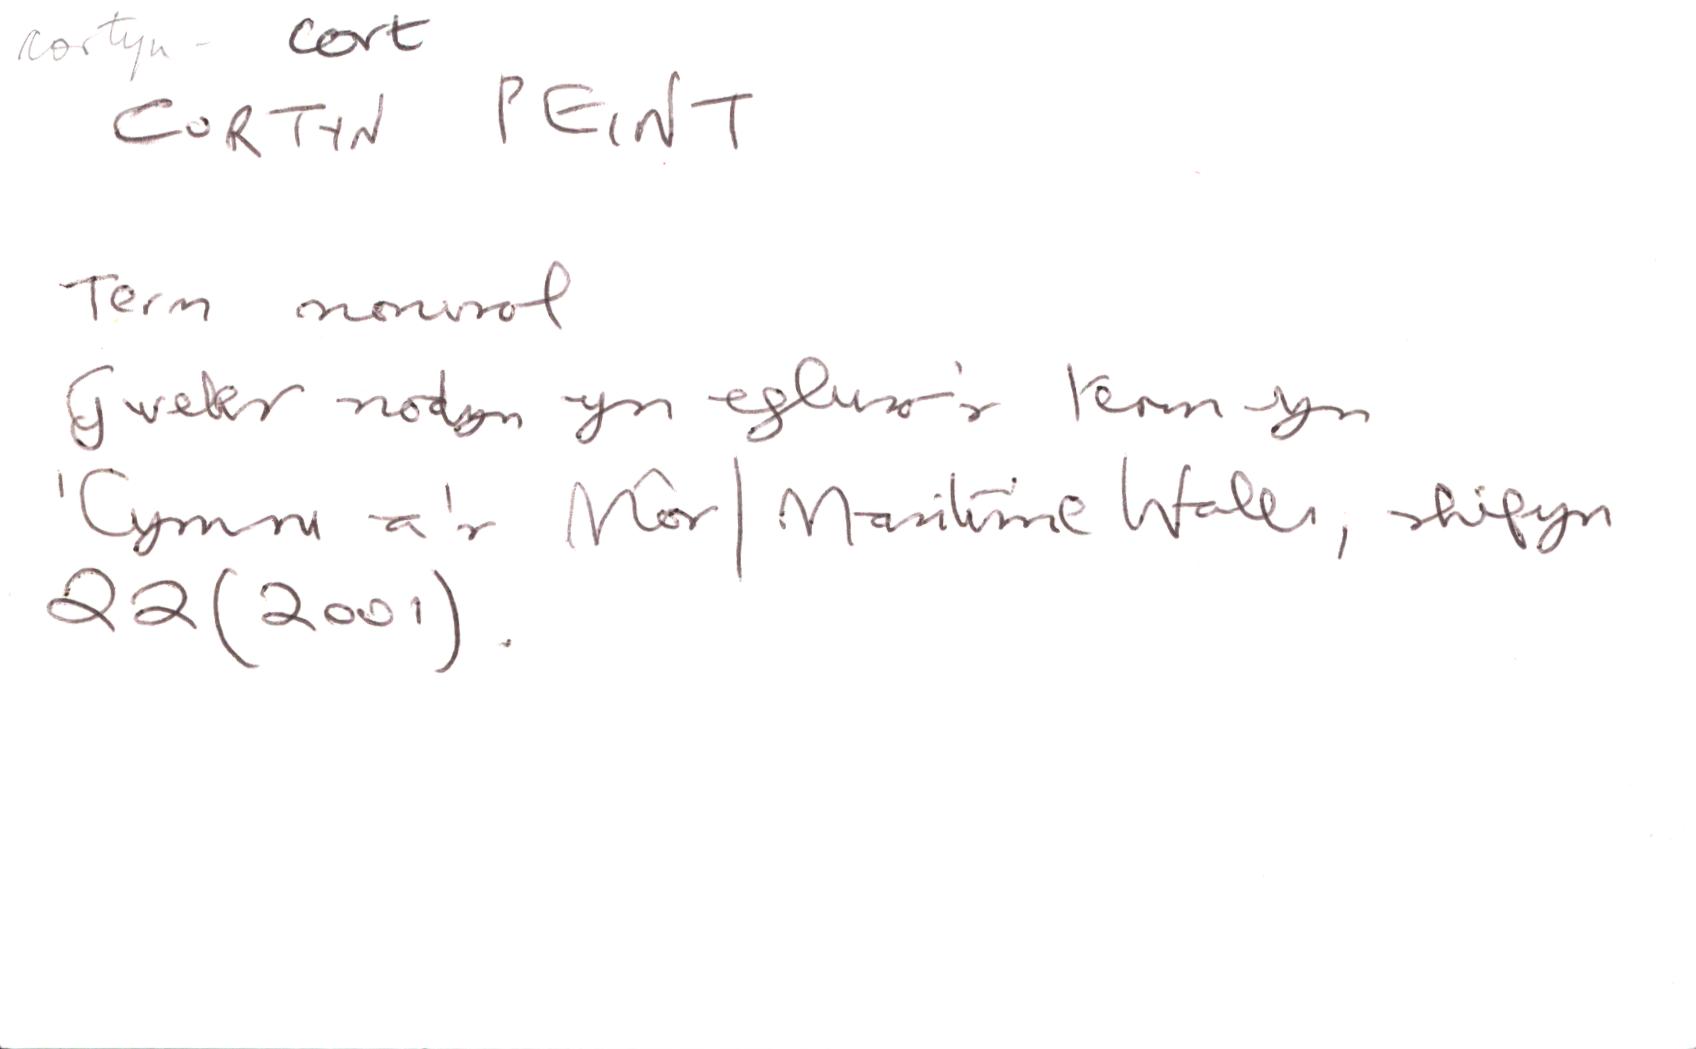 cortyn - cort
CORTYN PEINT
Term morwrol
Gweler nodyn yn egluro'r term yn
'Cymru a'r Môr / Maritime Wales, rhifyn
22 (2001).